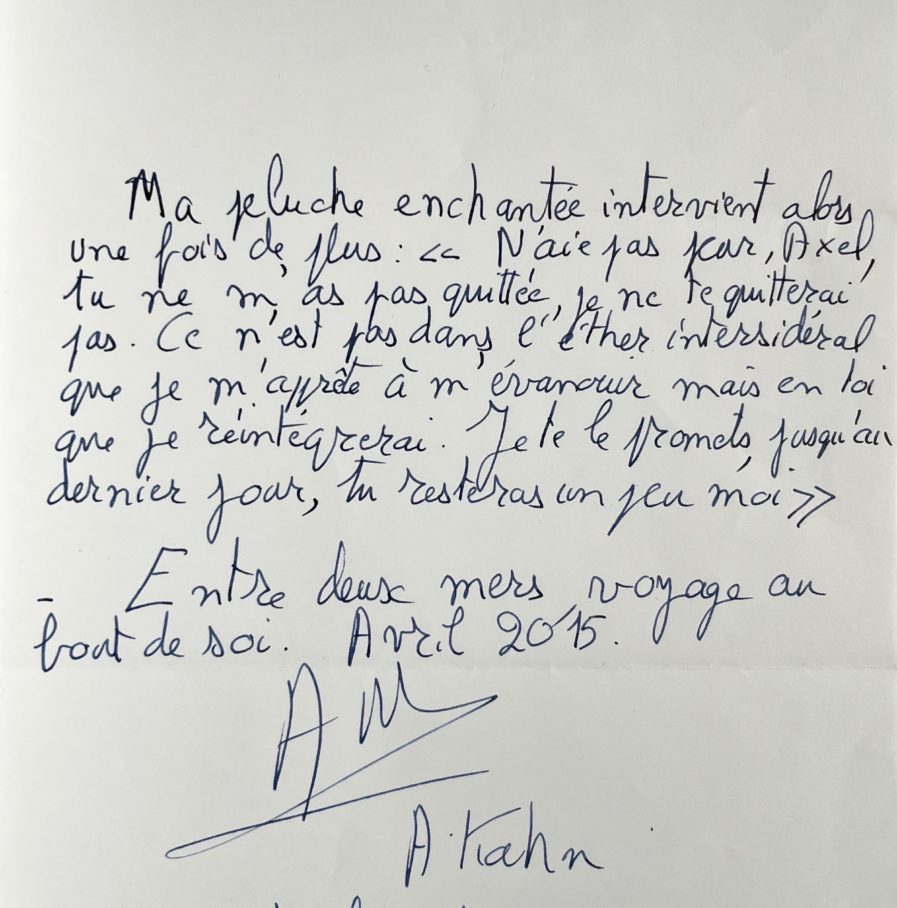 Ma peluche enchantée intervient alors
une fois de plus : << N'aie pas peur, Axel,
tu ne m'as pas quittée, je ne te quitterai
pas. Ce n'est pas dans l'éther intersidéral
que je m'apprête à m'évanouir mais en toi
que je réintégrerai. Je te le promets, jusqu'au
dernier jour, tu resteras un peu moi >>
- Entre deux mers voyage au
bout de soi. Avril 2015.
A. Kahn